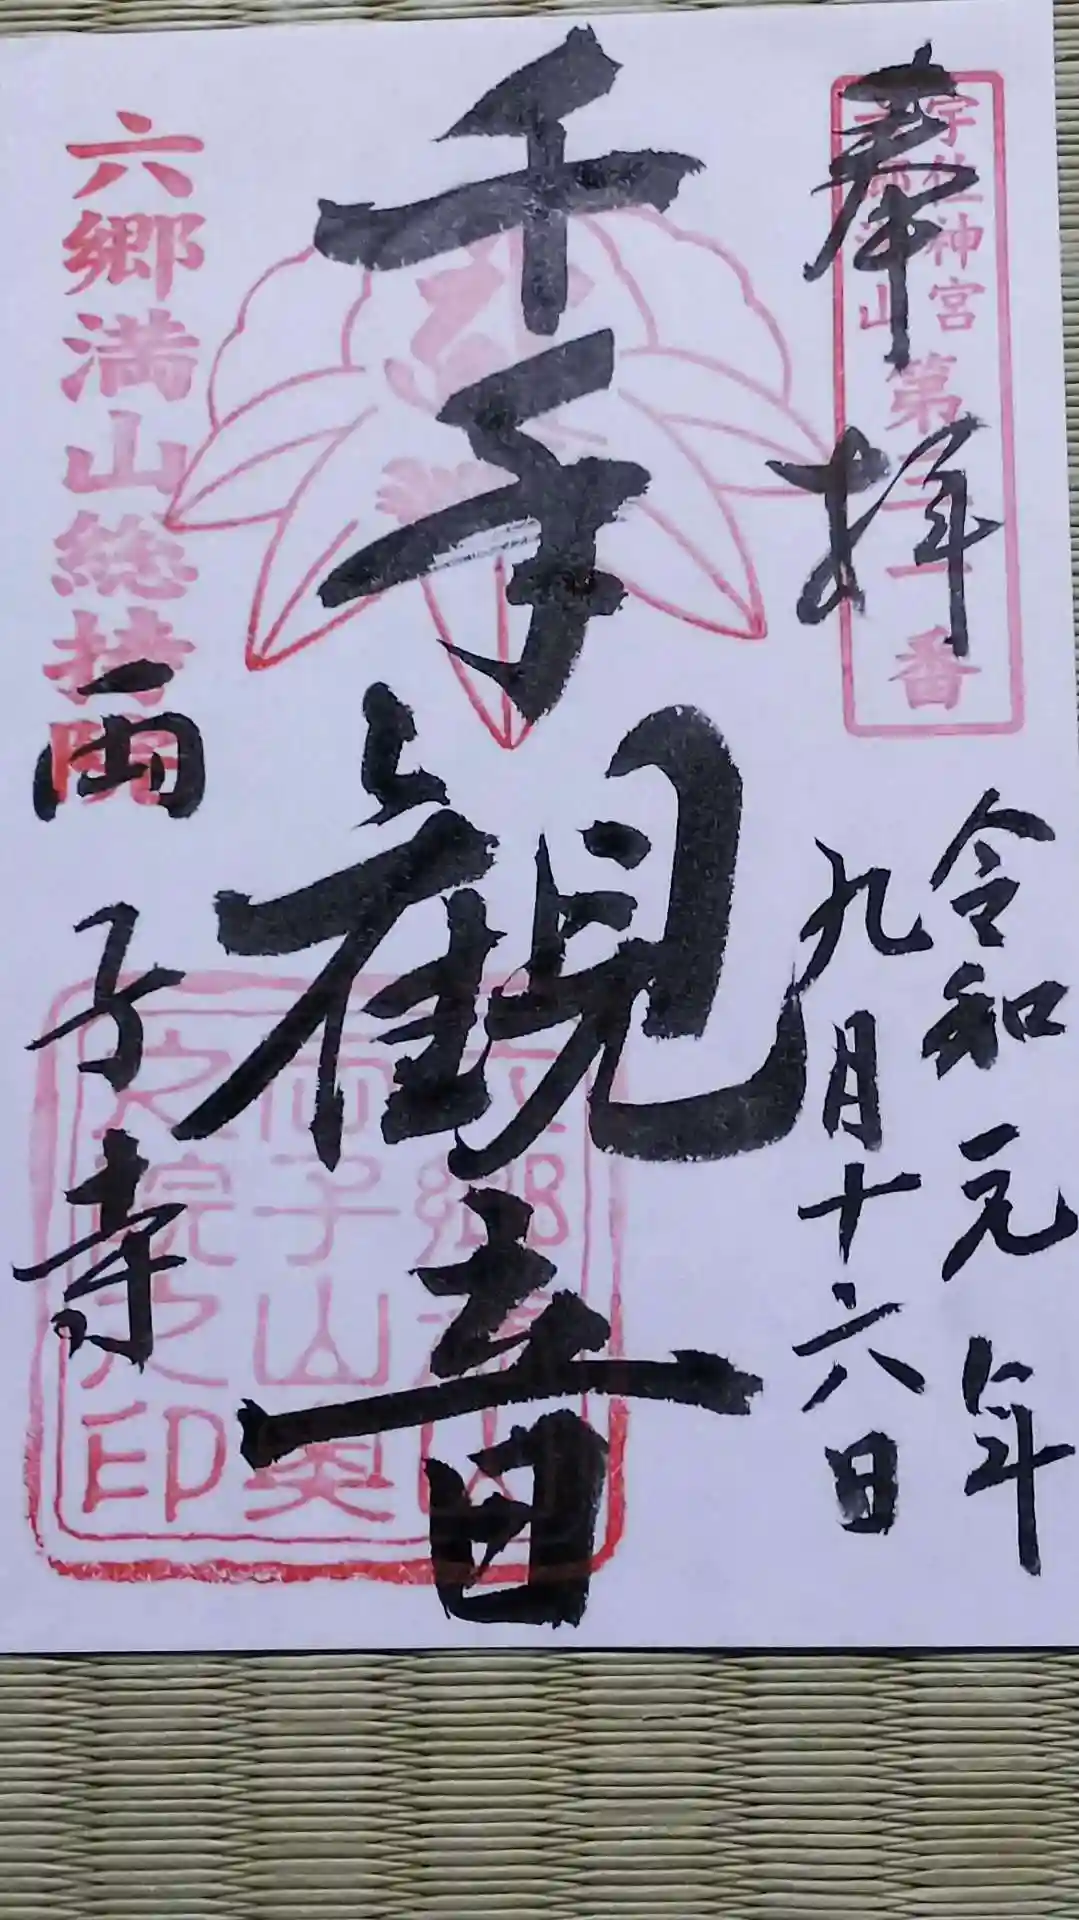 奉拝
宇佐神宮
六郷満山
番
令和元年
九月十六日
千手観音
六郷満山総持院
両子寺
両子山奥
之院之印